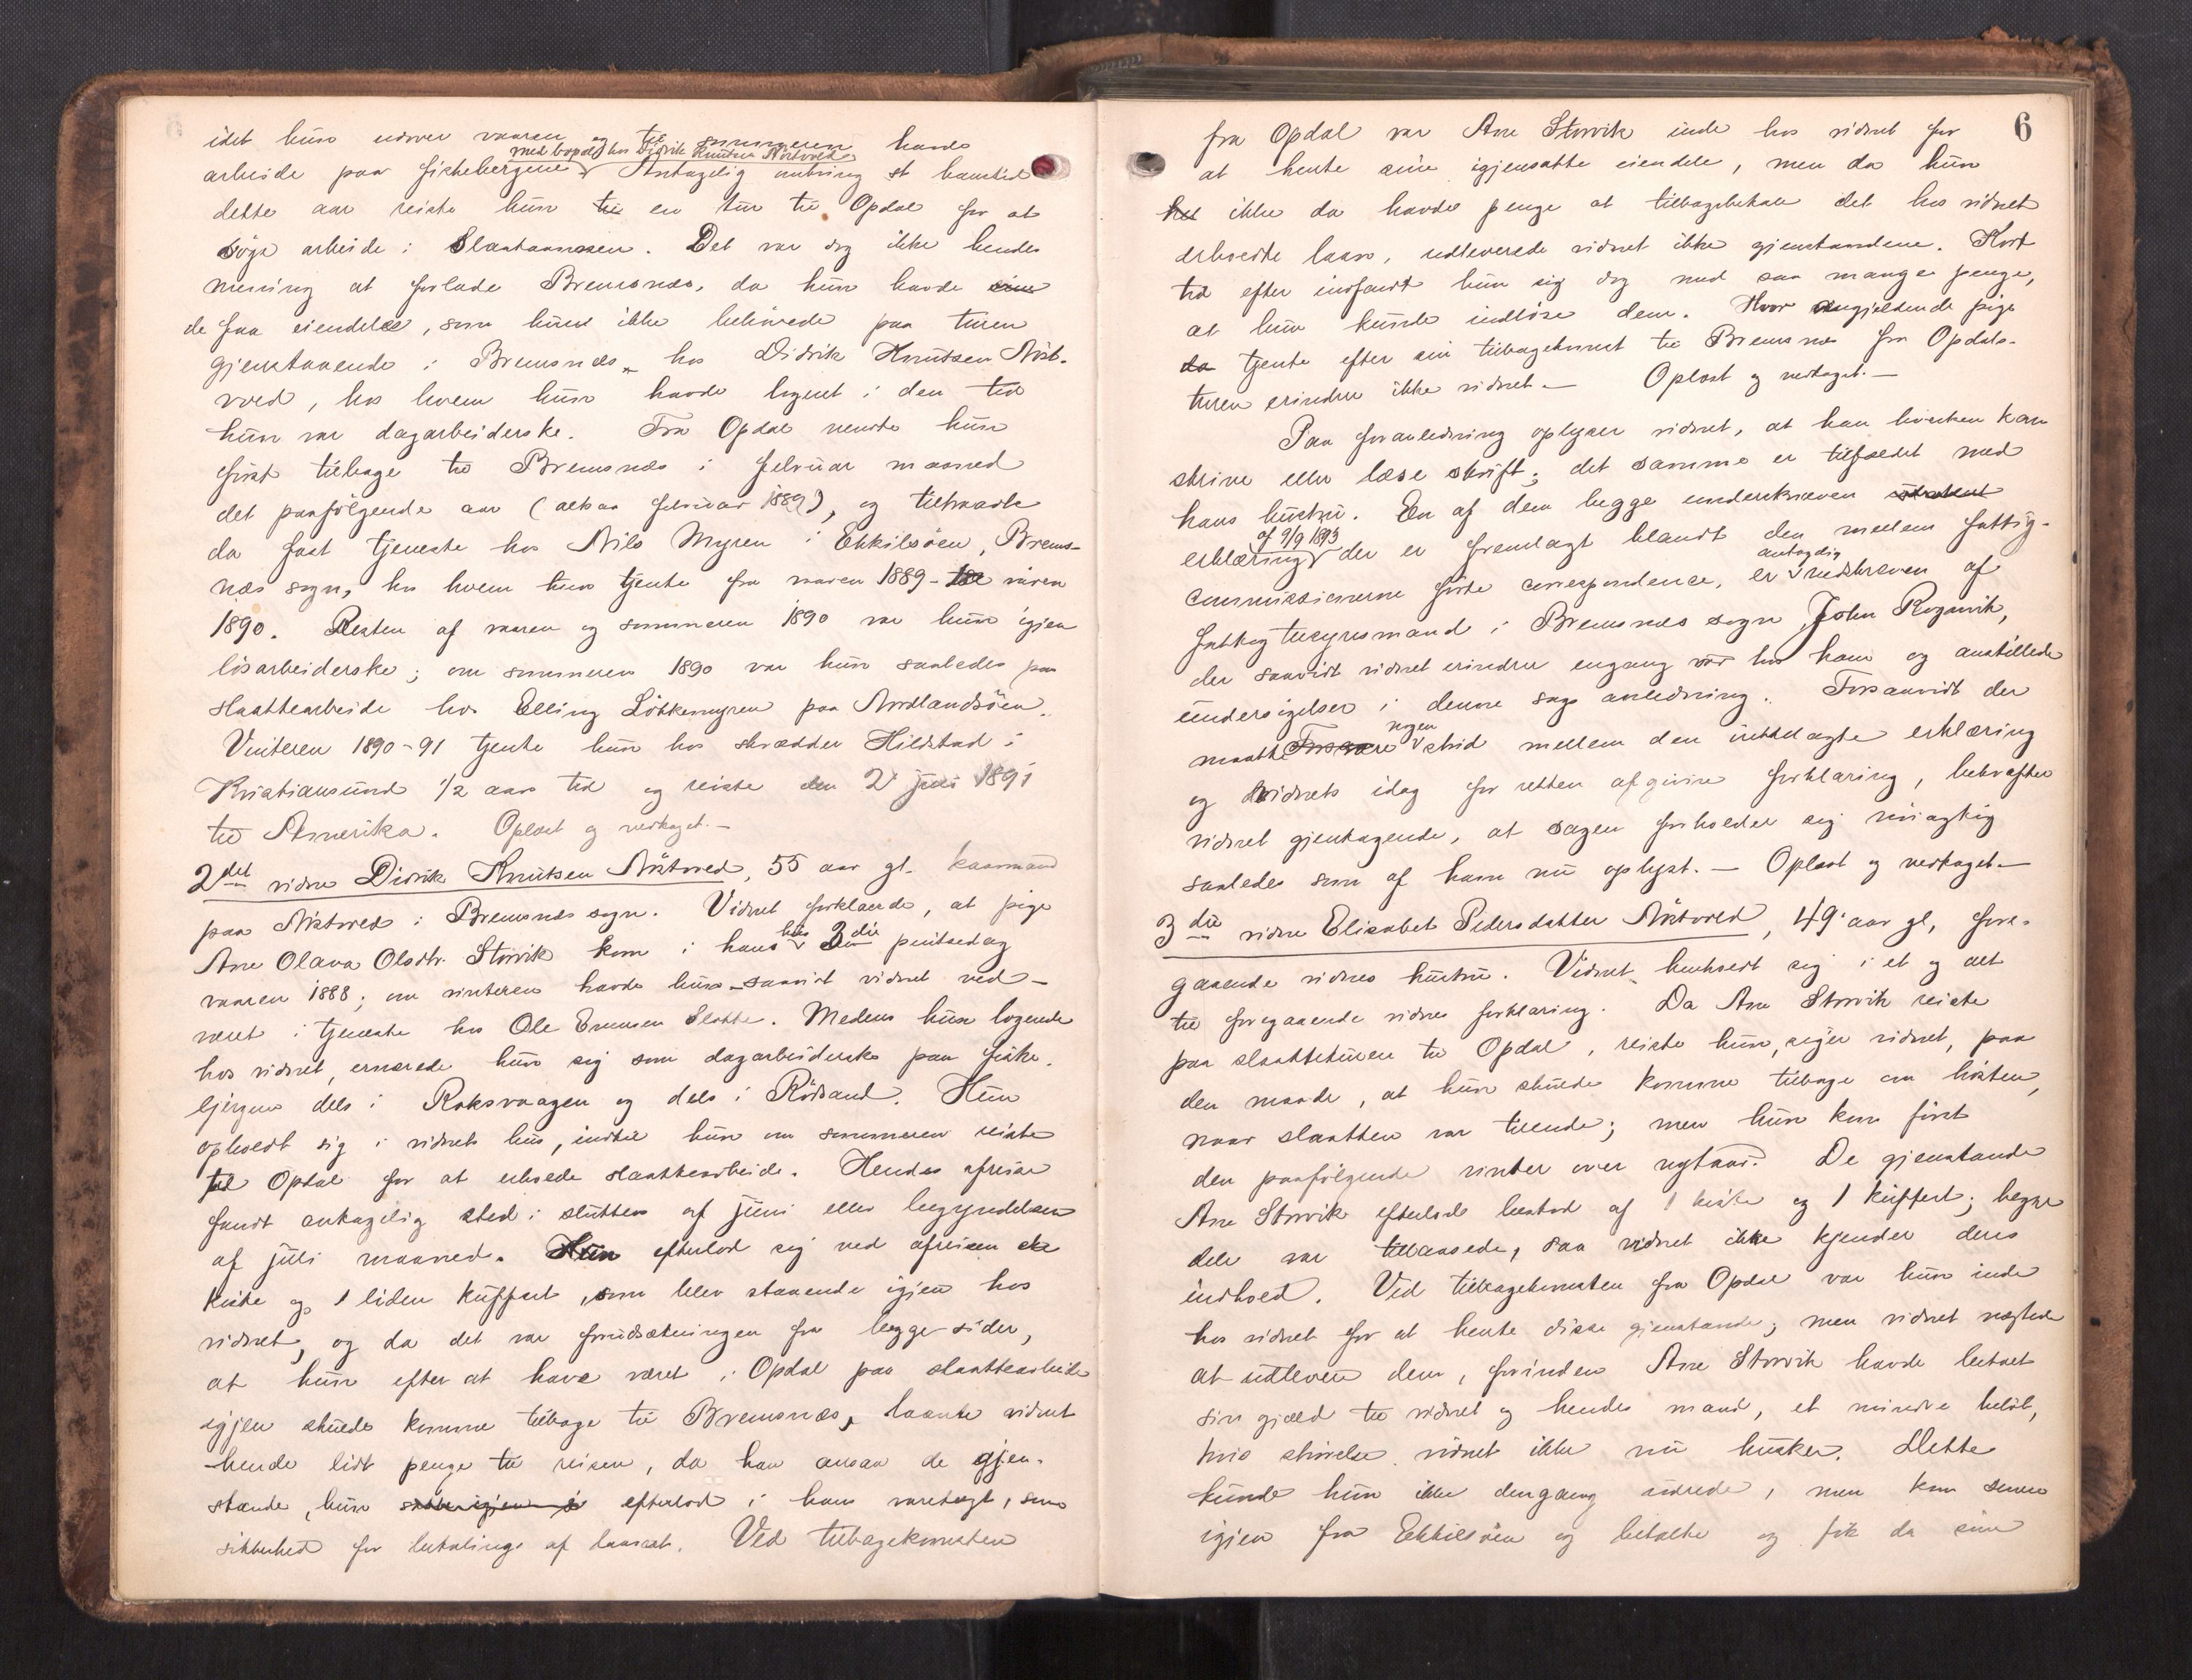 idet hun udover vaaren og til sommeren havde
med bopæl hos Didrik Knutsen Nöstvold
arbeide paa fiskebergene. Antagelig omkring St. hanstid
dette aar reiste hun til en tur til Opdal for at
söge arbeide i Slaataannen. Det var dog ikke hendes
mening at forlade Bremsnæs, da hun havde sine
de faa eiendele, som hun ikke behövede paa turen
gjenstaaende i Bremsnæs hos Didrik Knutsen Nöst-
vold, hos hvem hun havde logeret i den tid
hun var dagarbeiderske. Fra Opdal vendte hun
först tilbage til Bremsnæs i februar maaned
det paafölgende aar (altsaa februar 1889), og tiltraadte
da fast tjeneste hos Nils Myren i Ekkilsöen, Brems-
næs sogn, hos hvem hun tjente fra vaaren 1889 - til våren
1890. Resten af vaaren og sommeren 1890 var hun igjen
lösarbeiderske; om sommeren 1890 var hun saaledes paa
slaattearbeide hos Elling Lökkemyren paa Nordlandsöen.
Vinteren 1890-91 tjente hun hos skrædder Hildstad i
Kristiansund 1/2 aars tid og reiste den 2 juni 1891
til Amerika. Oplæst og vedtaget.-
2det vidne Didrik Knutsen Nöstvold, 55 aar gl. kaarmand
paa Nöstvold i Bremsnæs sogn. Vidnet forklarede, at pige
Ane Olava Olsdtr. Storvik kom i hans hus 3die pintsedag
vaaren 1888; om vinteren havde hun - saavidt vidnet ved -
været i tjeneste hos Ole Evensen Slatte. Medens hun logerede
hos vidnet, ernærede hun sig som dagarbeiderske paa fiske-
bjergene dels i Roksvaagen og dels i Rödsand. Hun
opholdt sig i vidnets hus, indtil hun om sommeren reiste
til Opdal for at erholde slaattearbeide. Hendes afreise
fandt antagelig sted i slutten af juni eller begyndelsen
af juli maaned. Hun efterlod sig ved afreisen en
kiste og 1 liden kuffert, som blev staaende igjen hos
vidnet, og da det var forudsætningen fra begge sider,
at hun efter at have været i Opdal paa slaattearbeide
igjen skulde komme tilbage til Bremsnæs, laante vidnet
hende lidt penge til reisen, da han ansaa de gjen-
stande, hun satte igjen i efterlod i hans varetægt, som
sikkerhed for betalinge af laanet. Ved tilbagekomsten
6
fra Opdal var Ane Storvik inde hos vidnet for
at hente sine igjensatte eiendele, men da hun
ikke da havde penge at tilbagebetale det hos vidnet
erholdte laan, udleverede vidnet ikke gjenstandene. Kort
tid efter indfandt hun sig dog med saa mange penge,
at hun kunde indlöse dem. Hvor angjældende pige
da tjente efter sin tilbagekomst til Bremsnæs fra Opdals-
turen erindrer ikke vidnet. - Oplæst og vedtaget. -
Paa foranledning oplyser vidnet, at han hverken kan
skrive eller læse skrift; det samme er tilfældet med
hans hustru. En af dem begge underskreven
erklæring af 9/9 1893 der er fremlagt blandt den mellem fattig-
commissionerne förte correspondence, er antagelig nedskreven af
fattigtilsynsmand i Bremsnæs sogn John Roganvik,
der saavidt vidnet erindrer engang var hos ham og anstillede
undersögelser i denne sags anledning. Forsaavidt der
maatte være nogen strid mellem den irettelagte erklæring
og vidnets idag for retten afgivne forklaring, bekræfter
vidnet gjentagende, at sagen forholder sig nöiagtig
saaledes som af ham nu oplyst. - Oplæst og vedtaget. -
3die vidne Elisabet Pedersdatter Nöstvold, 49 aar gl, fore-
gaaende vidnes hustru. Vidnet henholdt sig i et og alt
til foregaaende vidnes forklaring. Da Ane Storvik reiste
paa slaatteturen til Opdal, reiste hun, siger vidnet, paa
den maade, at hun skulde komme tilbage om hösten,
naar slaatten var tilende; men hun kom först
den paafölgende vinter over nytaar. De gjenstande
Ane Storvik efterlod bestod af 1 kiste og 1 kuffert; begge
dele var tillaasede, saa vidnet ikke kjender deres
indhold. Ved tilbagekomsten fra Opdal var hun inde
hos vidnet for at hente disse gjenstande; men vidnet nægtede
at udlevere dem, forinden Ane Storvik havde betalt
sin gjæld til vidnet og hendes mand, et mindre belöb,
hvis störrelse vidnet ikke nu husker. Dette
kunde hun ikke dengang udrede, men kom senere
igjen fra Ekkilsöen og betalte og fik da sine